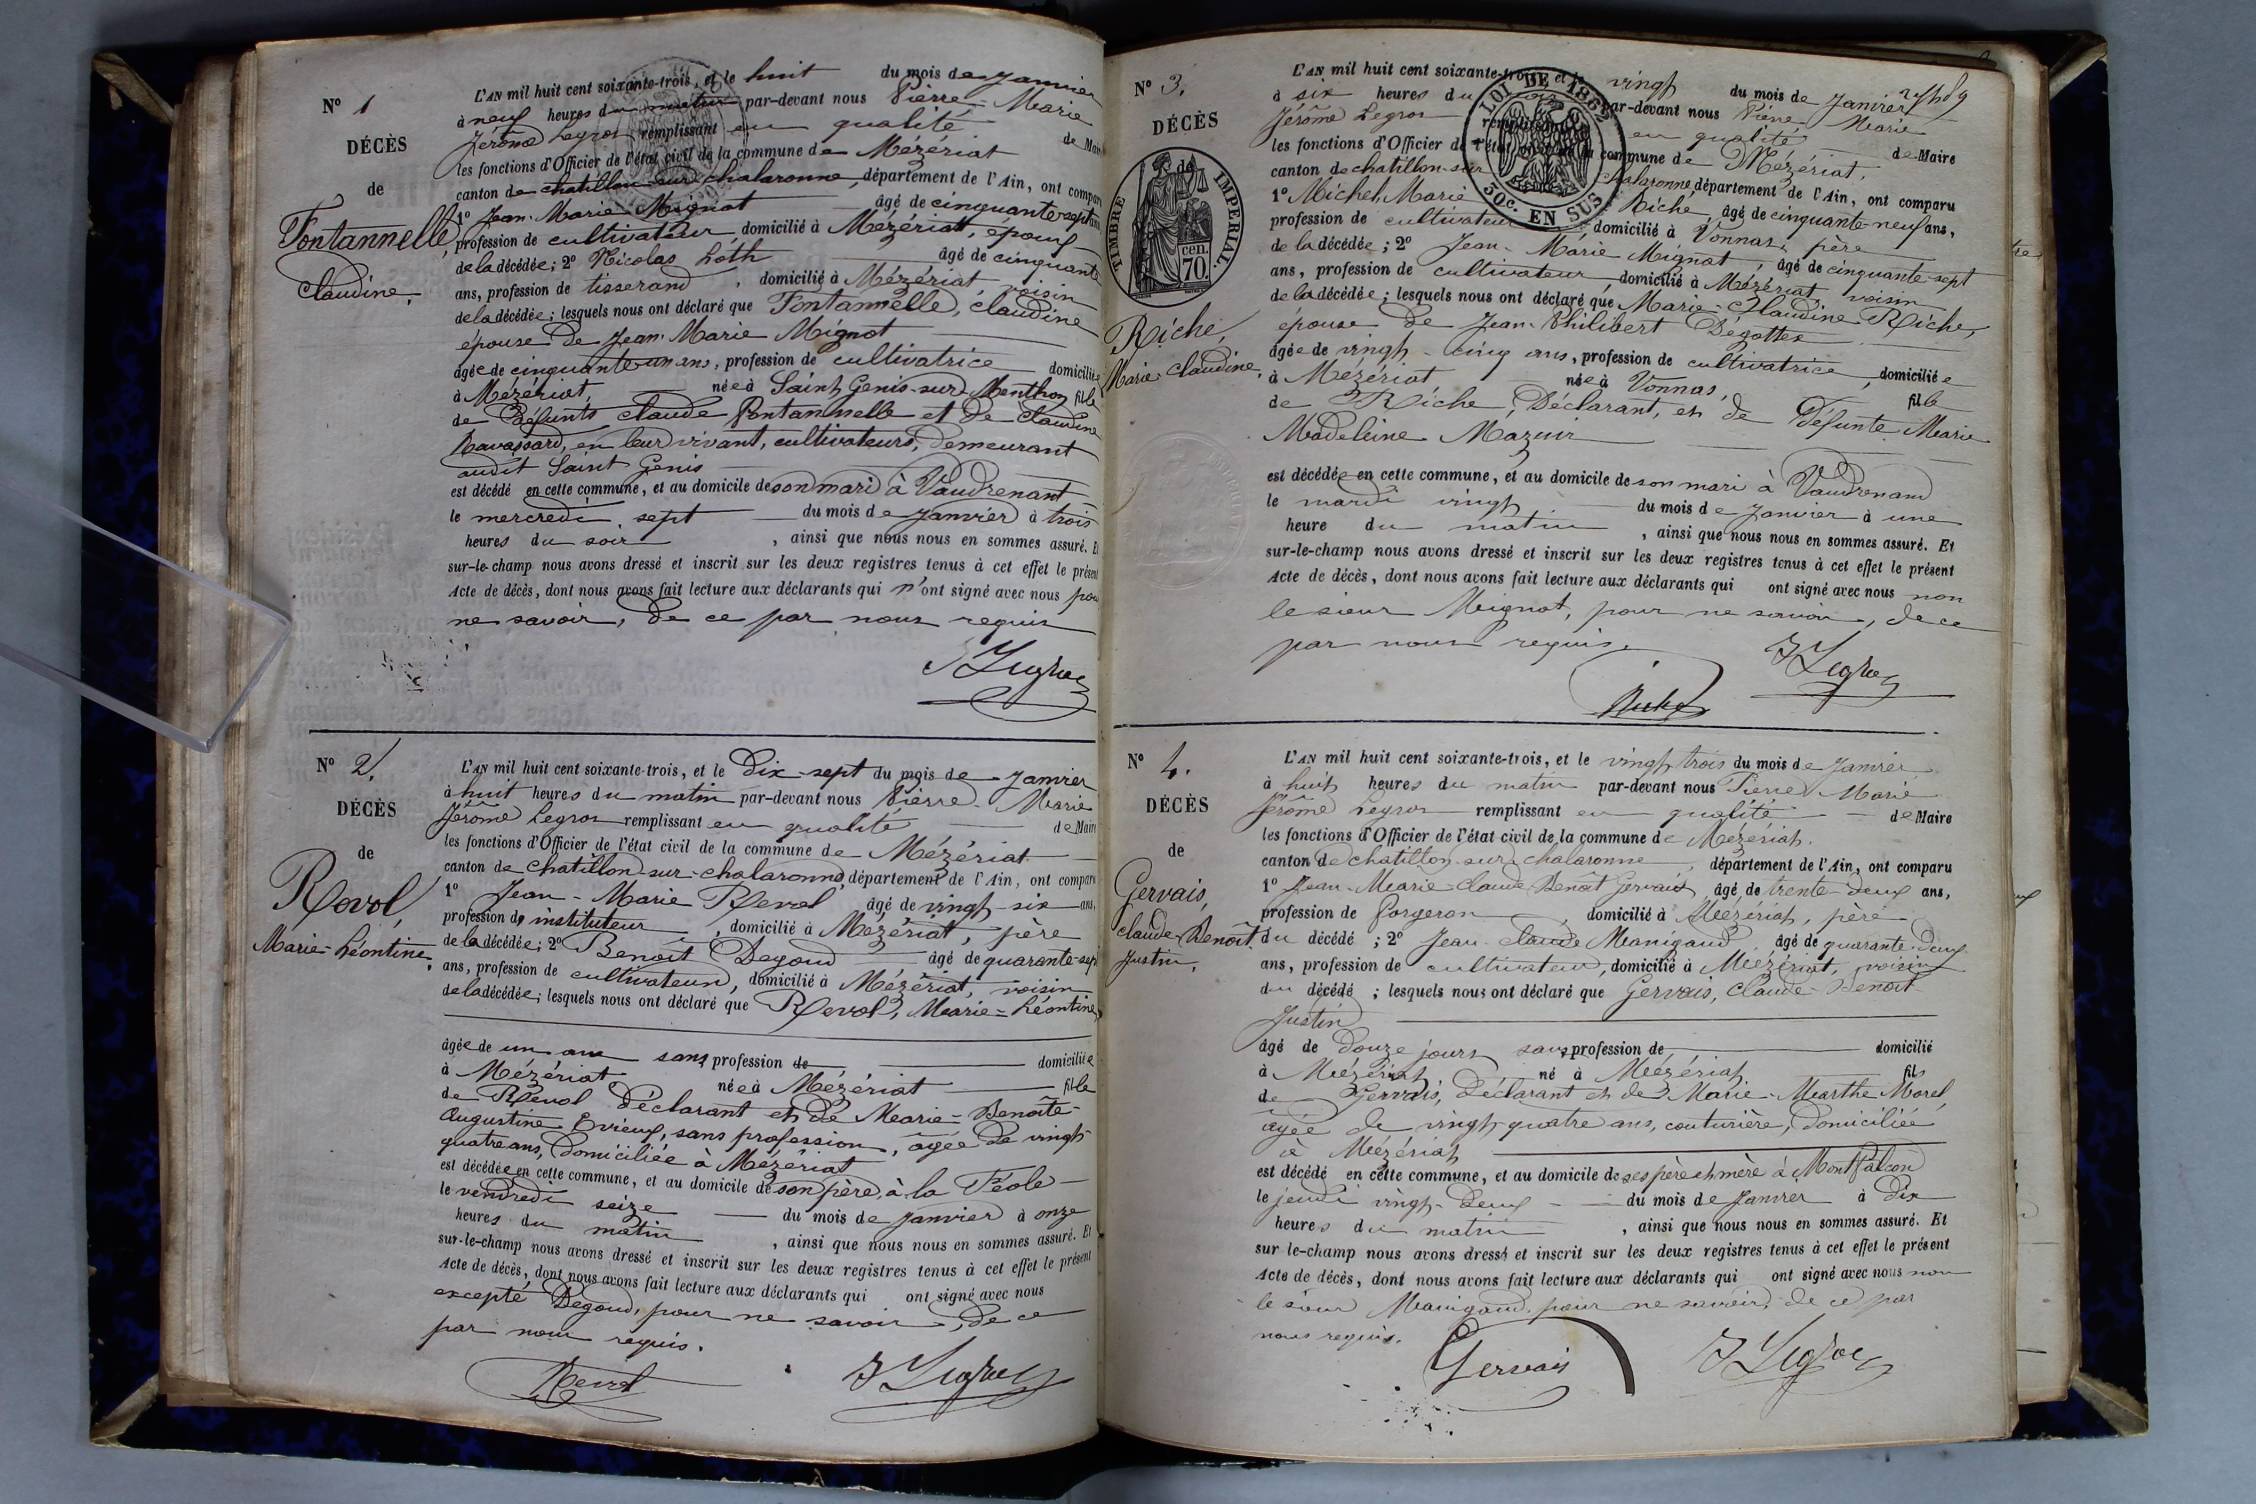 N° 1
DÉCÈS
de
Fontannelle,
Claudine.
L'AN mil huit cent soixante-trois, et le huit du mois de Janvier
à neuf heures du matin par-devant nous Pierre-Marie
Jérôme Legros remplissant en qualité de Maire
les fonctions d'Officier de l'état civil de la commune de Mézériat
canton de chatillon-sur-chalaronne, département de l'Ain, ont comparu
1° Jean-Marie Mignot âgé de cinquante-sept ans,
profession de cultivateur domicilié à Mézériat, époux
de la décédée; 2° Nicolas Loth âgé de cinquante
ans, profession de tisserand, domicilié à Mézériat, voisin
de la décédée; lesquels nous ont déclaré que Fontannelle, claudine
épouse de Jean-Marie Mignot
âgée de cinquante-un ans, profession de cultivatrice domiciliée
à Mézériat, née à Saint Genis-sur-Menthon fille
de défunts claude Fontannelle et de claudine
Ravassard, en leur vivant, cultivateurs, demeurant
audit Saint Genis
est décédé en cette commune, et au domicile de son mari à Vaudrenant
le mercredi sept du mois de Janvier à trois
heures du soir, ainsi que nous nous en sommes assuré. Et
sur-le-champ nous avons dressé et inscrit sur les deux registres tenus à cet effet le présent
Acte de décès, dont nous avons fait lecture aux déclarants qui n'ont signé avec nous pour
ne savoir, de ce par nous requis
J Legros
N° 2.
DÉCÈS
de
Revol,
Marie-Léontine.
L'AN mil huit cent soixante-trois, et le dix-sept du mois de Janvier
à huit heures du matin par-devant nous Pierre-Marie
Jérôme Legros remplissant en qualité de Maire
les fonctions d'Officier de l'état civil de la commune de Mézériat
canton de chatillon-sur-chalaronne, département de l'Ain, ont comparu
1° Jean-Marie Revol âgé de vingt-six ans,
profession de instituteur, domicilié à Mézériat, père
de la décédée; 2° Benoît Degoud âgé de quarante-sept
ans, profession de cultivateur, domicilié à Mézériat, voisin
de la décédée; lesquels nous ont déclaré que Revol, Marie-Léontine,
âgée de un an sans profession de domiciliée
à Mézériat, née à Mézériat fille
de Revol déclarant et de Marie-Benoîte-
Augustine Evieux, sans profession, âgée de vingt-
quatre ans, domiciliée à Mézériat
est décédée en cette commune, et au domicile de son père, à la Féole
le vendredi seize du mois de Janvier à onze
heures du matin, ainsi que nous nous en sommes assuré. Et
sur-le-champ nous avons dressé et inscrit sur les deux registres tenus à cet effet le présent
Acte de décès, dont nous avons fait lecture aux déclarants qui ont signé avec nous
excepté Degoud, pour ne savoir, de ce
par nous requis.
Revol J Legros
N° 3.
DÉCÈS
de
TIMBRE IMPÉRIAL.
70. cen.
Riche,
Marie Claudine.
LOI DE 1862
50c. EN SUS
L'AN mil huit cent soixante-trois, et le vingt du mois de Janvier
à six heures du par-devant nous Pierre Marie
Jérôme Legros remplissant en qualité de Maire
les fonctions d'Officier de l'état civil de la commune de Mézériat,
canton de chatillon-sur chalaronne, département de l'Ain, ont comparu
1° Michel Marie Riche, âgé de cinquante-neuf ans,
profession de cultivateur domicilié à Vonnas, père
de la décédée; 2° Jean-Marie Mignot, âgé de cinquante-sept
ans, profession de cultivateur, domicilié à Mézériat, voisin
de la décédée; lesquels nous ont déclaré que Marie-Claudine Riche,
épouse de Jean-Philibert Dégottex
âgée de vingt-cinq ans, profession de cultivatrice, domiciliée
à Mézériat née à Vonnas, fille
de Riche, Déclarant, et de défunte Marie
Madeleine Mazuir
est décédée en cette commune, et au domicile de son mari à Vaudrenant
le mardi vingt du mois de Janvier à une
heure du matin, ainsi que nous nous en sommes assuré. Et
sur-le-champ nous avons dressé et inscrit sur les deux registres tenus à cet effet le présent
Acte de décès, dont nous avons fait lecture aux déclarants qui ont signé avec nous non
le sieur Mignot, pour ne savoir, de ce
par nous requis.
Riche J Legros
N° 4.
DÉCÈS
de
Gervais,
Claude-Benoît
Justin.
L'AN mil huit cent soixante-trois, et le vingt trois du mois de Janvier
à huit heures du matin par-devant nous Pierre Marie
Jérôme Legros remplissant en qualité de Maire
les fonctions d'Officier de l'état civil de la commune de Mézériat.
canton de chatillon-sur-chalaronne, département de l'Ain, ont comparu
1° Jean-Marie-Claude Benoît Gervais, âgé de trente-deux ans,
profession de Forgeron, domicilié à Mézériat, père
du décédé; 2° Jean-Claude Manigand, âgé de quarante-deux
ans, profession de cultivateur, domicilié à Mézériat, voisin
du décédé; lesquels nous ont déclaré que Gervais, Claude-Benoît
Justin
âgé de douze jours sans profession de domicilié
à Mézériat né à Mézériat fils
de Gervais, Déclarant et de Marie-Marthe Morel,
âgée de vingt-quatre ans, couturière, domiciliée
à Mézériat
est décédé en cette commune, et au domicile de ses père et mère à Montfalcon
le jeudi vingt-deux du mois de Janvier à dix
heures du matin, ainsi que nous nous en sommes assuré. Et
sur-le-champ nous avons dressé et inscrit sur les deux registres tenus à cet effet le présent
Acte de décès, dont nous avons fait lecture aux déclarants qui ont signé avec nous non
le sieur Manigand, pour ne savoir, de ce par
nous requis.
Gervais J Legros